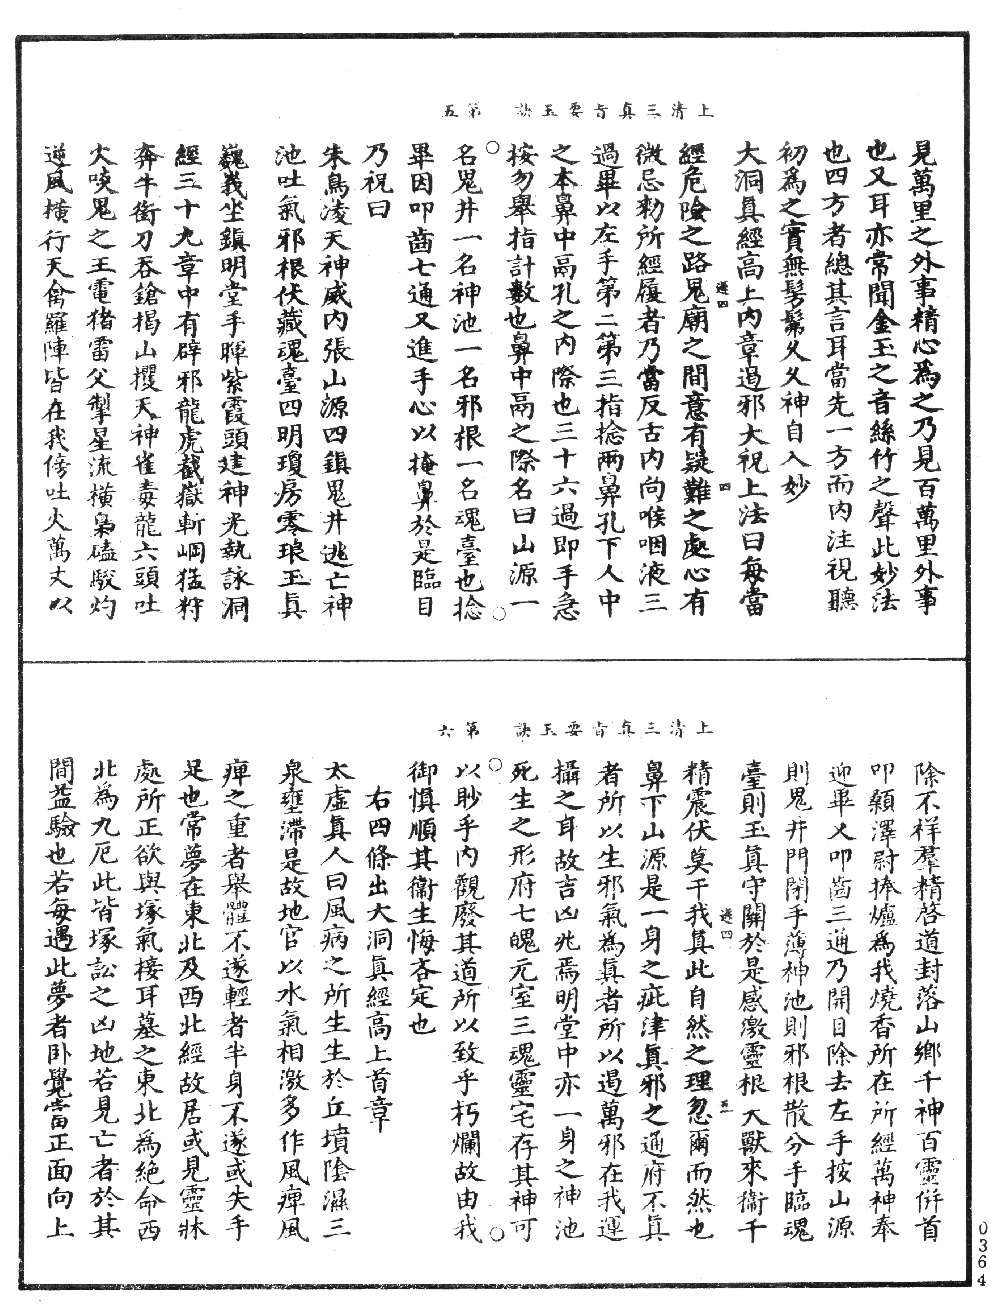 上清三真旨要玉訣　第五
見萬里之外事精心爲之乃見百萬里外事
也又耳亦常聞金玉之音絲竹之聲此妙法
也四方者總其言耳當先一方而内注視聽
初爲之實無髣髴久久神自入妙
大洞眞經高上内章遏邪大祝上法曰每當
經危險之路鬼廟之間意有疑難之處心有
微忌勑所經履者乃當反舌内向喉咽液三
過畢以左手第二第三指捻兩鼻孔下人中
之本鼻中鬲孔之内際也三十六過即手急
按勿舉指計數也鼻中鬲之際名曰山源一
名鬼井一名神池一名邪根一名魂臺也捻
畢因叩齒七通又進手心以掩鼻於是臨目
乃祝曰
朱鳥凌天神威内張山源四鎮鬼井逃亡神
池吐氣邪根伏藏魂臺四明瓊房零琅玉眞
巍峩坐鎮明堂手暉紫霞頭建神光執詠洞
經三十九章中有辟邪龍虎截嶽斬岡猛狩
奔牛銜刀吞鎗揭山攫天神雀毒龍六頭吐
火啖鬼之王電猪雷父掣星流橫梟磕駮灼
逆風橫行天禽羅陣皆在我傍吐火萬丈以
上清三真旨要玉訣　第六
除不祥羣精啓道封落山鄉千神百靈併首
叩顙澤尉捧爐爲我燒香所在所經萬神奉
迎畢又叩齒三通乃開目除去左手按山源
則鬼井門閉手薄神池則邪根散分手臨魂
臺則玉眞守關於是感激靈根天獸來衞千
精震伏莫干我眞此自然之理忽爾而然也
鼻下山源是一身之疵津眞邪之通府不眞
者所以生邪氣爲眞者所以遏萬邪在我運
攝之耳故吉凶兆焉明堂中亦一身之神池
死生之形府七魄元室三魂靈宅存其神可
以眇乎内觀廢其道所以致乎朽爛故由我
御愼順其衞生悔吝定也
右四條出大洞眞經高上首章
太虛眞人曰風病之所生生於丘墳陰濕三
泉壅滯是故地官以水氣相激多作風痺風
痺之重者舉體不遂輕者半身不遂或失手
足也常夢在東北及西北經故居或見靈牀
處所正欲與塚氣接耳墓之東北爲絶命西
北爲九厄此皆塚訟之凶地若見亡者於其
間益驗也若每遇此夢者卧覺當正面向上
遜四
四
遜四
0364